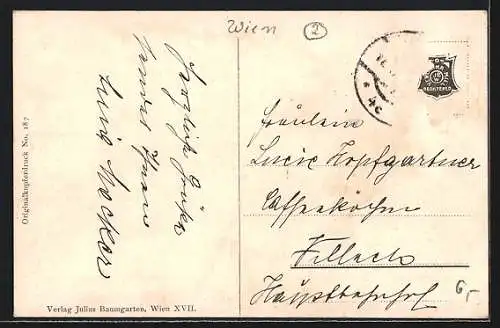 Wien
2
Herzlich Grüße
sendet Ihnen
Originalkupferdruck No. 187
Verlag Julius Baumgarten, Wien XVII.
Fräulein
Lucie Hopfgartner
Caffeeköchin
Villach
Hauptbahnhof
6,-